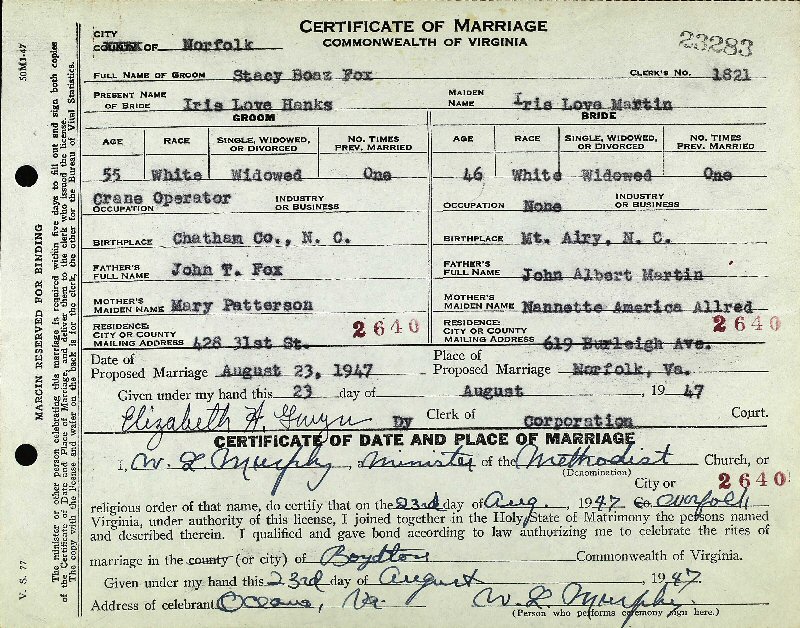 CERTIFICATE OF MARRIAGE
COMMONWEALTH OF VIRGINIA
23283
CITY
COUNTY OF Norfolk
FULL NAME OF GROOM Stacy Boaz Fox CLERK'S No. 1821
PRESENT NAME OF BRIDE Iris Love Hanks MAIDEN NAME Iris Love Martin
GROOM BRIDE
AGE RACE SINGLE, WIDOWED, OR DIVORCED NO. TIMES PREV. MARRIED AGE RACE SINGLE, WIDOWED, OR DIVORCED NO. TIMES PREV. MARRIED
55 White Widowed One 46 White Widowed One
OCCUPATION Crane Operator INDUSTRY OR BUSINESS OCCUPATION None INDUSTRY OR BUSINESS
BIRTHPLACE Chatham Co., N. C. BIRTHPLACE Mt. Airy, N. C.
FATHER'S FULL NAME John T. Fox FATHER'S FULL NAME John Albert Martin
MOTHER'S MAIDEN NAME Mary Patterson MOTHER'S MAIDEN NAME Nannette America Allred
RESIDENCE: CITY OR COUNTY 2640 RESIDENCE: CITY OR COUNTY 2640
MAILING ADDRESS 428 31st St. MAILING ADDRESS 619 Burleigh Ave.
Date of Proposed Marriage August 23, 1947 Place of Proposed Marriage Norfolk, Va.
Given under my hand this 23 day of August, 1947
Elizabeth H. Gwyn By Clerk of Corporation Court.
CERTIFICATE OF DATE AND PLACE OF MARRIAGE
I, W. L. Murphy, a Minister of the Methodist Church, or
(Denomination)
City or 2640
religious order of that name, do certify that on the 23rd day of Aug., 1947 Co. Norfolk
Virginia, under authority of this license, I joined together in the Holy State of Matrimony the persons named
and described therein. I qualified and gave bond according to law authorizing me to celebrate the rites of
marriage in the county (or city) of Boydton Commonwealth of Virginia.
Given under my hand this 23rd day of August, 1947.
Address of celebrant Oceana, Va W. L. Murphy.
(Person who performs ceremony sign here.)
50M1-47
V. S. 77
MARGIN RESERVED FOR BINDING
The minister or other person celebrating this marriage is required within five days to fill out and sign both copies
of the Certificate of Date and Place of Marriage, and deliver them to the clerk who issued the license.
The copy with the license and waiver on the back is for the clerk, the other for the Bureau of Vital Statistics.